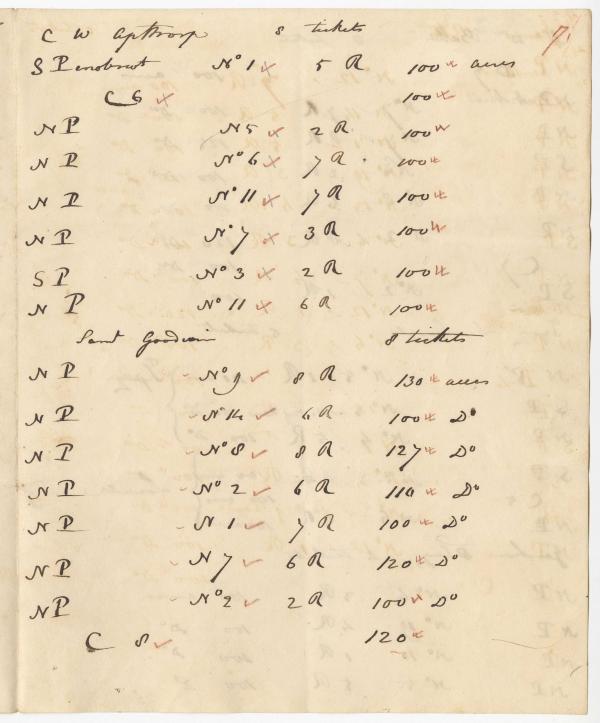 7.
C W Apthorp 8 tickets
S Penobscot No 1 x 5 R 100 acres
C 6 x 100
N P N 5 x 2 R 100
N P No 6 x 7 R 100
N P No 11 x 7 R 100
N P No 7 x 3 R 100
S P No 3 x 2 R 100
N P No 11 x 6 R 100
Saml Goodwin 8 tickets
N P - No 9 ✓ 8 R 130 acres
N P - N 14 ✓ 6 R 100 Do
N P - No 8 ✓ 8 R 127 Do
N P - No 2 ✓ 6 R 110 Do
N P - N 1 ✓ 7 R 100 Do
N P - N 7 ✓ 6 R 120 Do
N P - No 2 ✓ 2 R 100 Do
C 8 ✓ 120